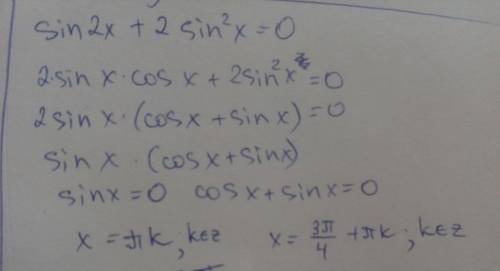 sin2x + 2 sin²x = 0
2·sin x·cos x + 2sin²x = 0
2sin x·(cosx + sin x) = 0
sin x · (cosx + sinx)
sinx = 0   cosx + sinx = 0
x = πk; k∈z   x = 3π/4 + πk; k∈z